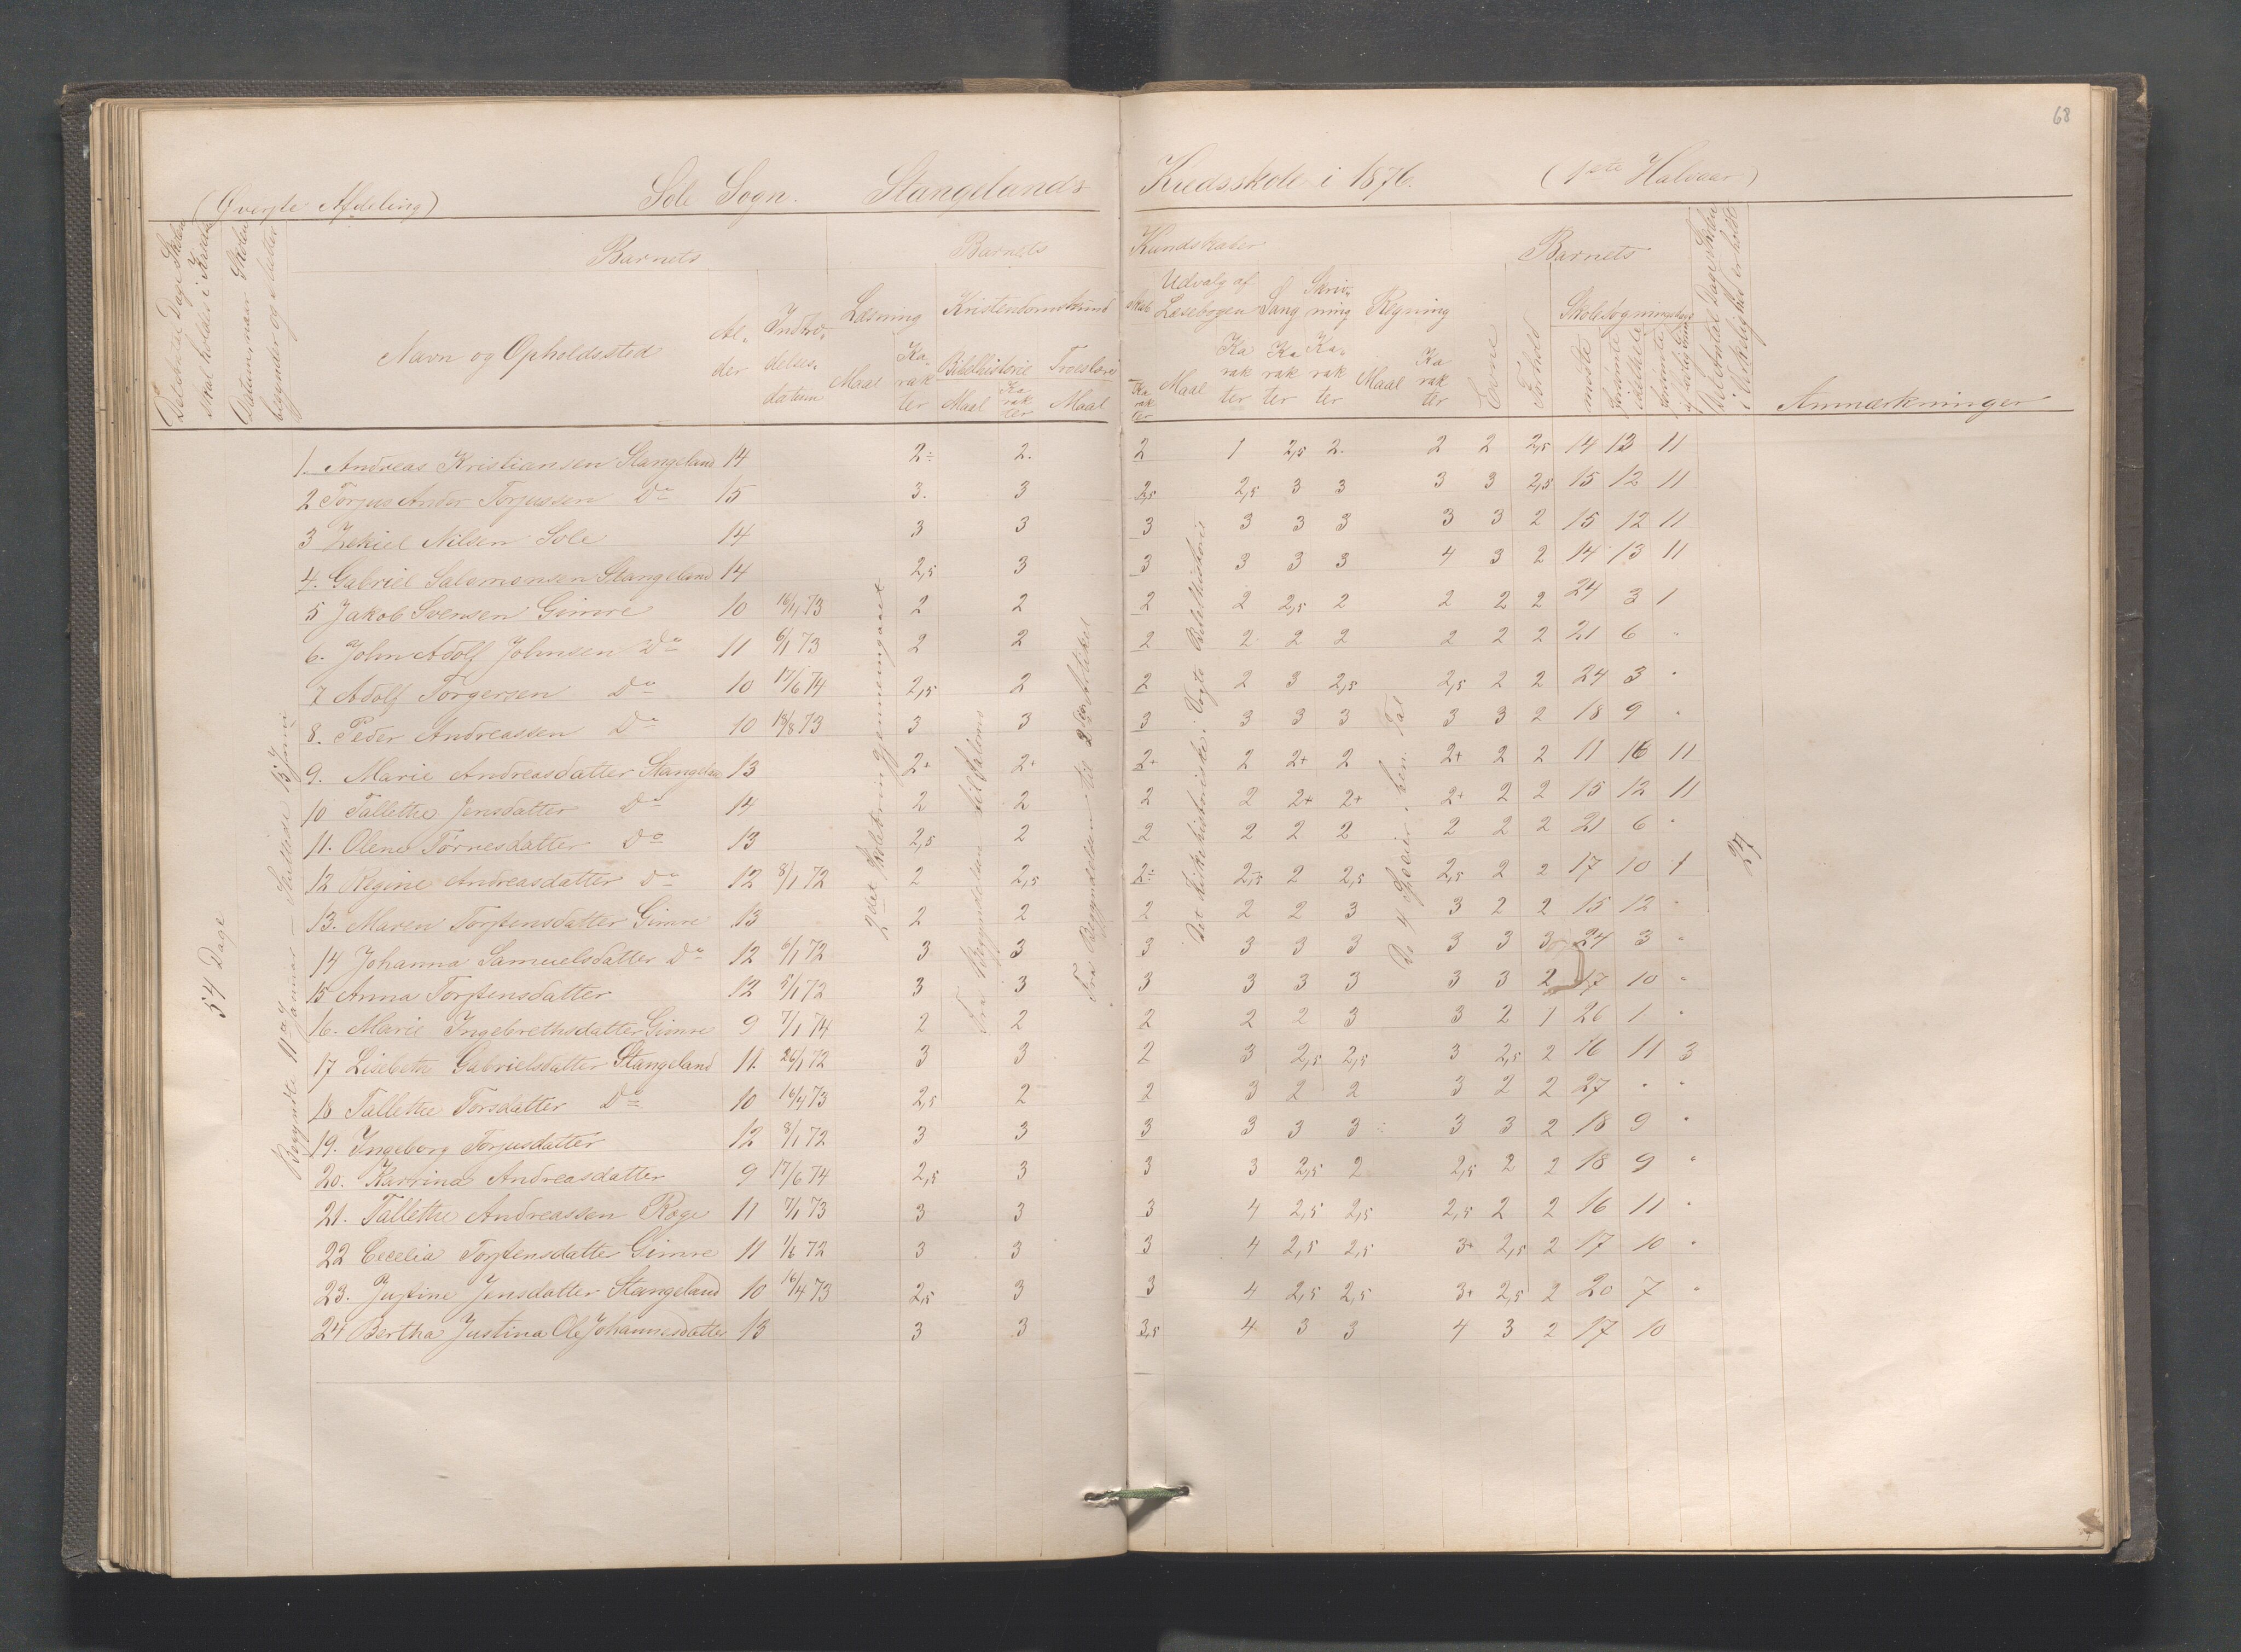 68
(Øverste Afdeling) Sole Sogn. Stangelands Kredsskole i 1876. (1ste Halvaar)
Det befalte Dage Skolen skal holdes i Kredsen
Datum, naar Skolen begynder og slutter
Barnets
Navn og Opholdssted
Al-der
Indtrædelses-datum
Barnets Kundskaber
Læsning
Maal
Karakter
Kristendomskundskab
Bibelhistorie
Troeslære
Maal
Karakter
Maal
Karakter
Udvalg af Læsebogen
Maal
Karakter
Sang
Karakter
Skrivning
Karakter
Regning
Maal
Karakter
Barnets
Evne
Forhold
Skolesøgningsdage
mødte
forsømte i det Hele
forsømte af lovlig Grund
Det Antal Dage Skolen i Virkelighed er holdt
Anmærkninger
54 Dage
Begyndte 11te Januar – Sluttede 15 Juni
2det Skoletrin gjennemgaaet
Fra Begyndelsen til Salomo
Fra Begyndelsen til 2den Artikel
Det Kirkehistoriske i Vogts Bibelhistorie
De 4 Specier i hen. Tal
27
1. Andreas Kristiansen Stangeland 14 2÷ 2. 2 1 2,5 2. 2 2 2,5 14 13 11
2 Torjus Ander Torjussen Do 15 3. 3 2,5 2,5 3 3 3 3 2,5 15 12 11
3 Zekiel Nilsen Sole 14 3 3 3 3 3 3 3 3 2 15 12 11
4. Gabriel Salomonsen Stangeland 14 2,5 3 3 3 3 3 4 3 2 14 13 11
5 Jakob Svensen Gimre 10 16/4 73 2 2 2 2 2,5 2 2 2 2 24 3 1
6. John Adolf Johnsen Do 11 6/1 73 2 2 2 2 2 2 2 2 2 21 6 "
7 Adolf Torgersen Do 10 17/6 74 2,5 2 2 2 3 2,5 2,5 2 2 24 3 "
8. Peder Andreassen Do 10 18/8 73 3 3 3 3 3 3 3 3 2 18 9 "
9. Marie Andreasdatter Stangeland 13 2+ 2+ 2+ 2 2+ 2 2+ 2 2 11 16 11
10 Tallethe Jensdatter Do 14 2 2 2 2 2+ 2+ 2+ 2 2 15 12 11
11. Olene Tørnesdatter Do 13 2,5 2 2 2 2 2 2 2 2 21 6 "
12 Regine Andreasdatter Do 12 8/1 72 2 2,5 2÷ 2,5 2 2,5 2,5 2 2 17 10 1
13. Maren Torstensdatter Gimre 13 2 2 2 2 2 3 3 2 2 15 12 "
14 Johanna Samuelsdatter Do 12 6/1 72 3 3 3 3 3 3 3 3 3 24 3 "
15 Anna Torstensdatter 12 5/1 72 3 3 3 3 3 3 3 3 2 17 10 "
16. Marie Ingebrethsdatter Gimre 9 7/1 74 2 2 2 2 2 3 3 2 1 26 1 "
17 Lisbeth Gabrielsdatter Stangeland 11. 26/1 72 3 3 2 3 2,5 2,5 3 2,5 2 16 11 3
18 Tallethe Torsdatter Do 10 16/4 73 2,5 2 2 3 2 2 3 2 2 27 " "
19. Ingeborg Torjusdatter 12 8/1 72 3 3 3 3 3 3 3 3 2 18 9 "
20. Karrina Andreasdatter 9 17/6 74 2,5 3 3 3 2,5 2 2,5 2 2 18 9 "
21. Tallethe Andreassen Røge 11 7/1 73 3 3 3 4 2,5 2,5 2,5 2 2 16 11 "
22 Cecelia Torstensdatter Gimre 11 1/6 72 3 3 3 4 2,5 2,5 3+ 2,5 2 17 10 "
23. Justine Jensdatter Stangeland 10 16/4 73 2,5 3 3 4 2,5 2,5 3+ 2,5 2 20 7 "
24 Bertha Justina Ole Johannesdatter 13 3 3 3,5 4 3 3 4 3 2 17 10